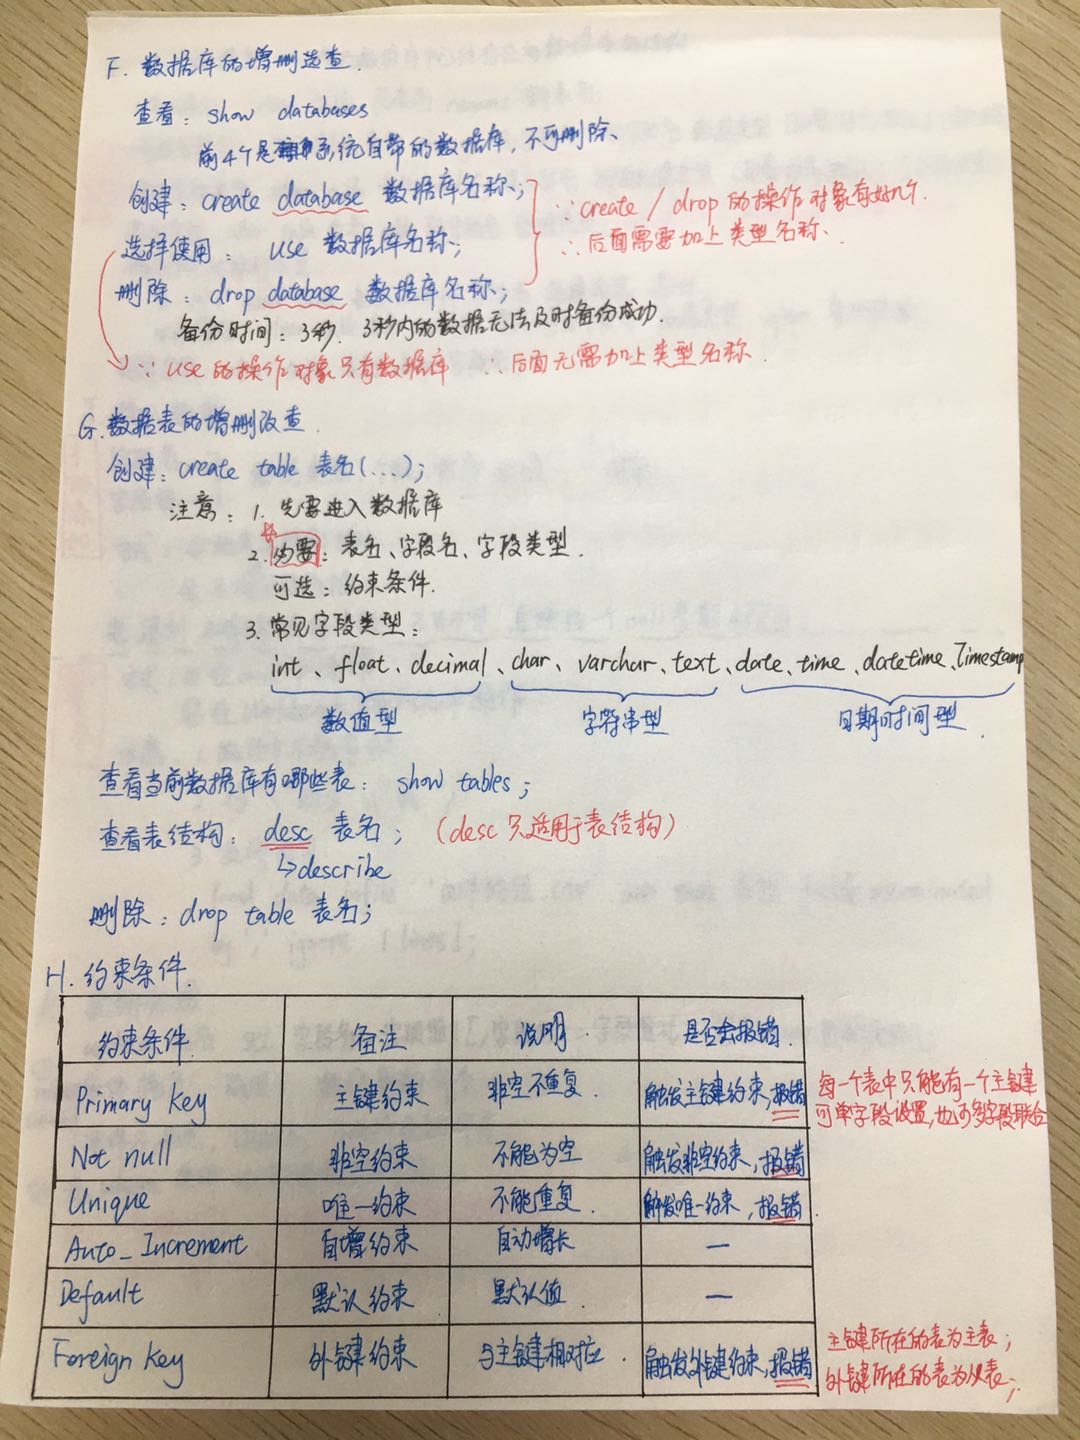 F. 数据库的增删选查.
查看: show databases
前4个是系统自带的数据库, 不可删除、
创建: create database 数据库名称、;
∵ create / drop 的操作对象有好几个.
选择使用: use 数据库名称;
∴ 后面需要加上类型名称、
删除: drop database 数据库名称;
备份时间: 3秒. 3秒内的数据无法及时备份成功.
∵ use 的操作对象只有数据库 ∴ 后面无需加上类型名称.
G. 数据表的增删改查.
创建: create table 表名(...);
注意: 1. 先要进入数据库
2. 必要: 表名、字段名、字段类型.
可选: 约束条件.
3. 常见字段类型:
int、float、decimal、char、varchar、text、date、time、datetime、Timestamp
数值型 字符串型 日期时间型.
查看当前数据库有哪些表: show tables;
查看表结构: desc 表名; (desc 只适用于表结构)
↳describe
删除: drop table 表名;
H. 约束条件.
约束条件 备注 说明 是否会报错.
Primary key 主键约束 非空不重复. 触发主键约束,报错
每一个表中只能有一个主键
可单字段设置,也可多字段联合
Not null 非空约束 不能为空 触发非空约束,报错
Unique 唯一约束 不能重复. 触发唯一约束,报错.
Auto_Increment 自增约束 自动增长 —
Default 默认约束 默认值. —
Foreign key 外键约束 与主键相对应. 触发外键约束,报错
主键所在的表为主表;
外键所在的表为从表;